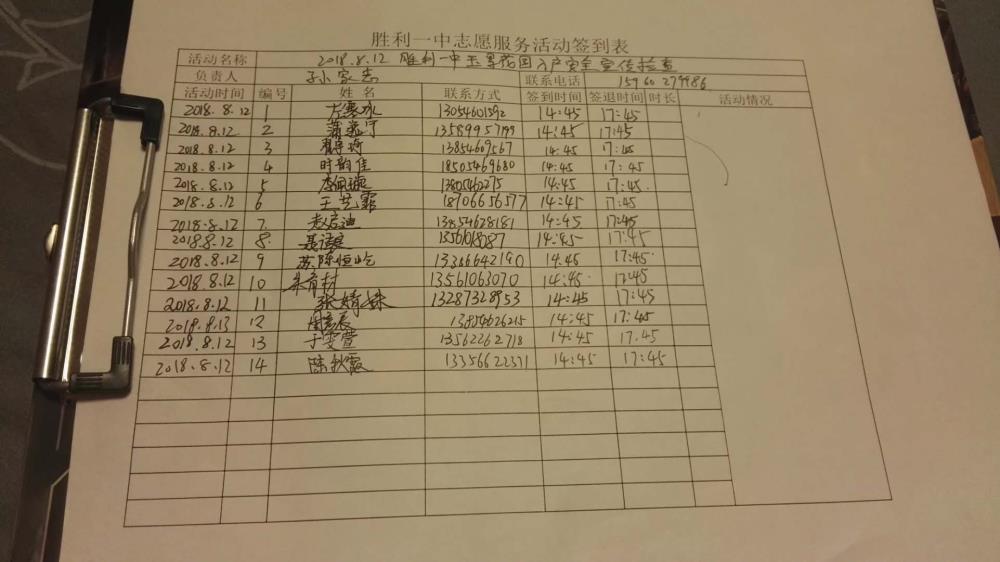 胜利一中志愿服务活动签到表
活动名称 2018.8.12 胜利一中玉景花园入户安全宣传检查
负责人 联系电话 15960279986
活动时间 编号 姓名 联系方式 签到时间 签退时间 时长 活动情况
2018.8.12 1 13054601592 14:45 17:45
2018.8.12 2 13589957199 14:45 17:45
2018.8.12 3 13854609567 14:45 17:45
2018.8.12 4 时韵佳 18505469680 14:45 17:45
2018.8.12 5 李佩璇 13805462275 14:45 17:45
2018.8.12 6 王艺霏 18706656577 14:45 17:45
2018.8.12 7 赵启迪 13854628181 14:45 17:45
2018.8.12 8 13561018087 14:45 17:45
2018.8.12 9 苏陈恒屹 13346642190 14:45 17:45
2018.8.12 10 朱育材 13561063070 14:45 17:45
2018.8.12 11 张婧姝 13287328953 14:45 17:45
2018.8.13 12 周彦辰 13854626215 14:45 17:45
2018.8.12 13 于雯萱 13562262718 14:45 17:45
2018.8.12 14 陈秋霞 13356622371 14:45 17:45